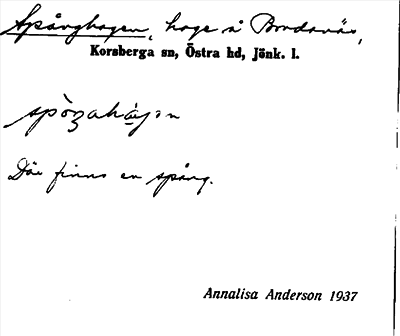 Spånghagen, hage å Bordsnäs,
Korsberga sn, Östra hd, Jönk. l.
Där finns en spång.
Annalisa Anderson 1937